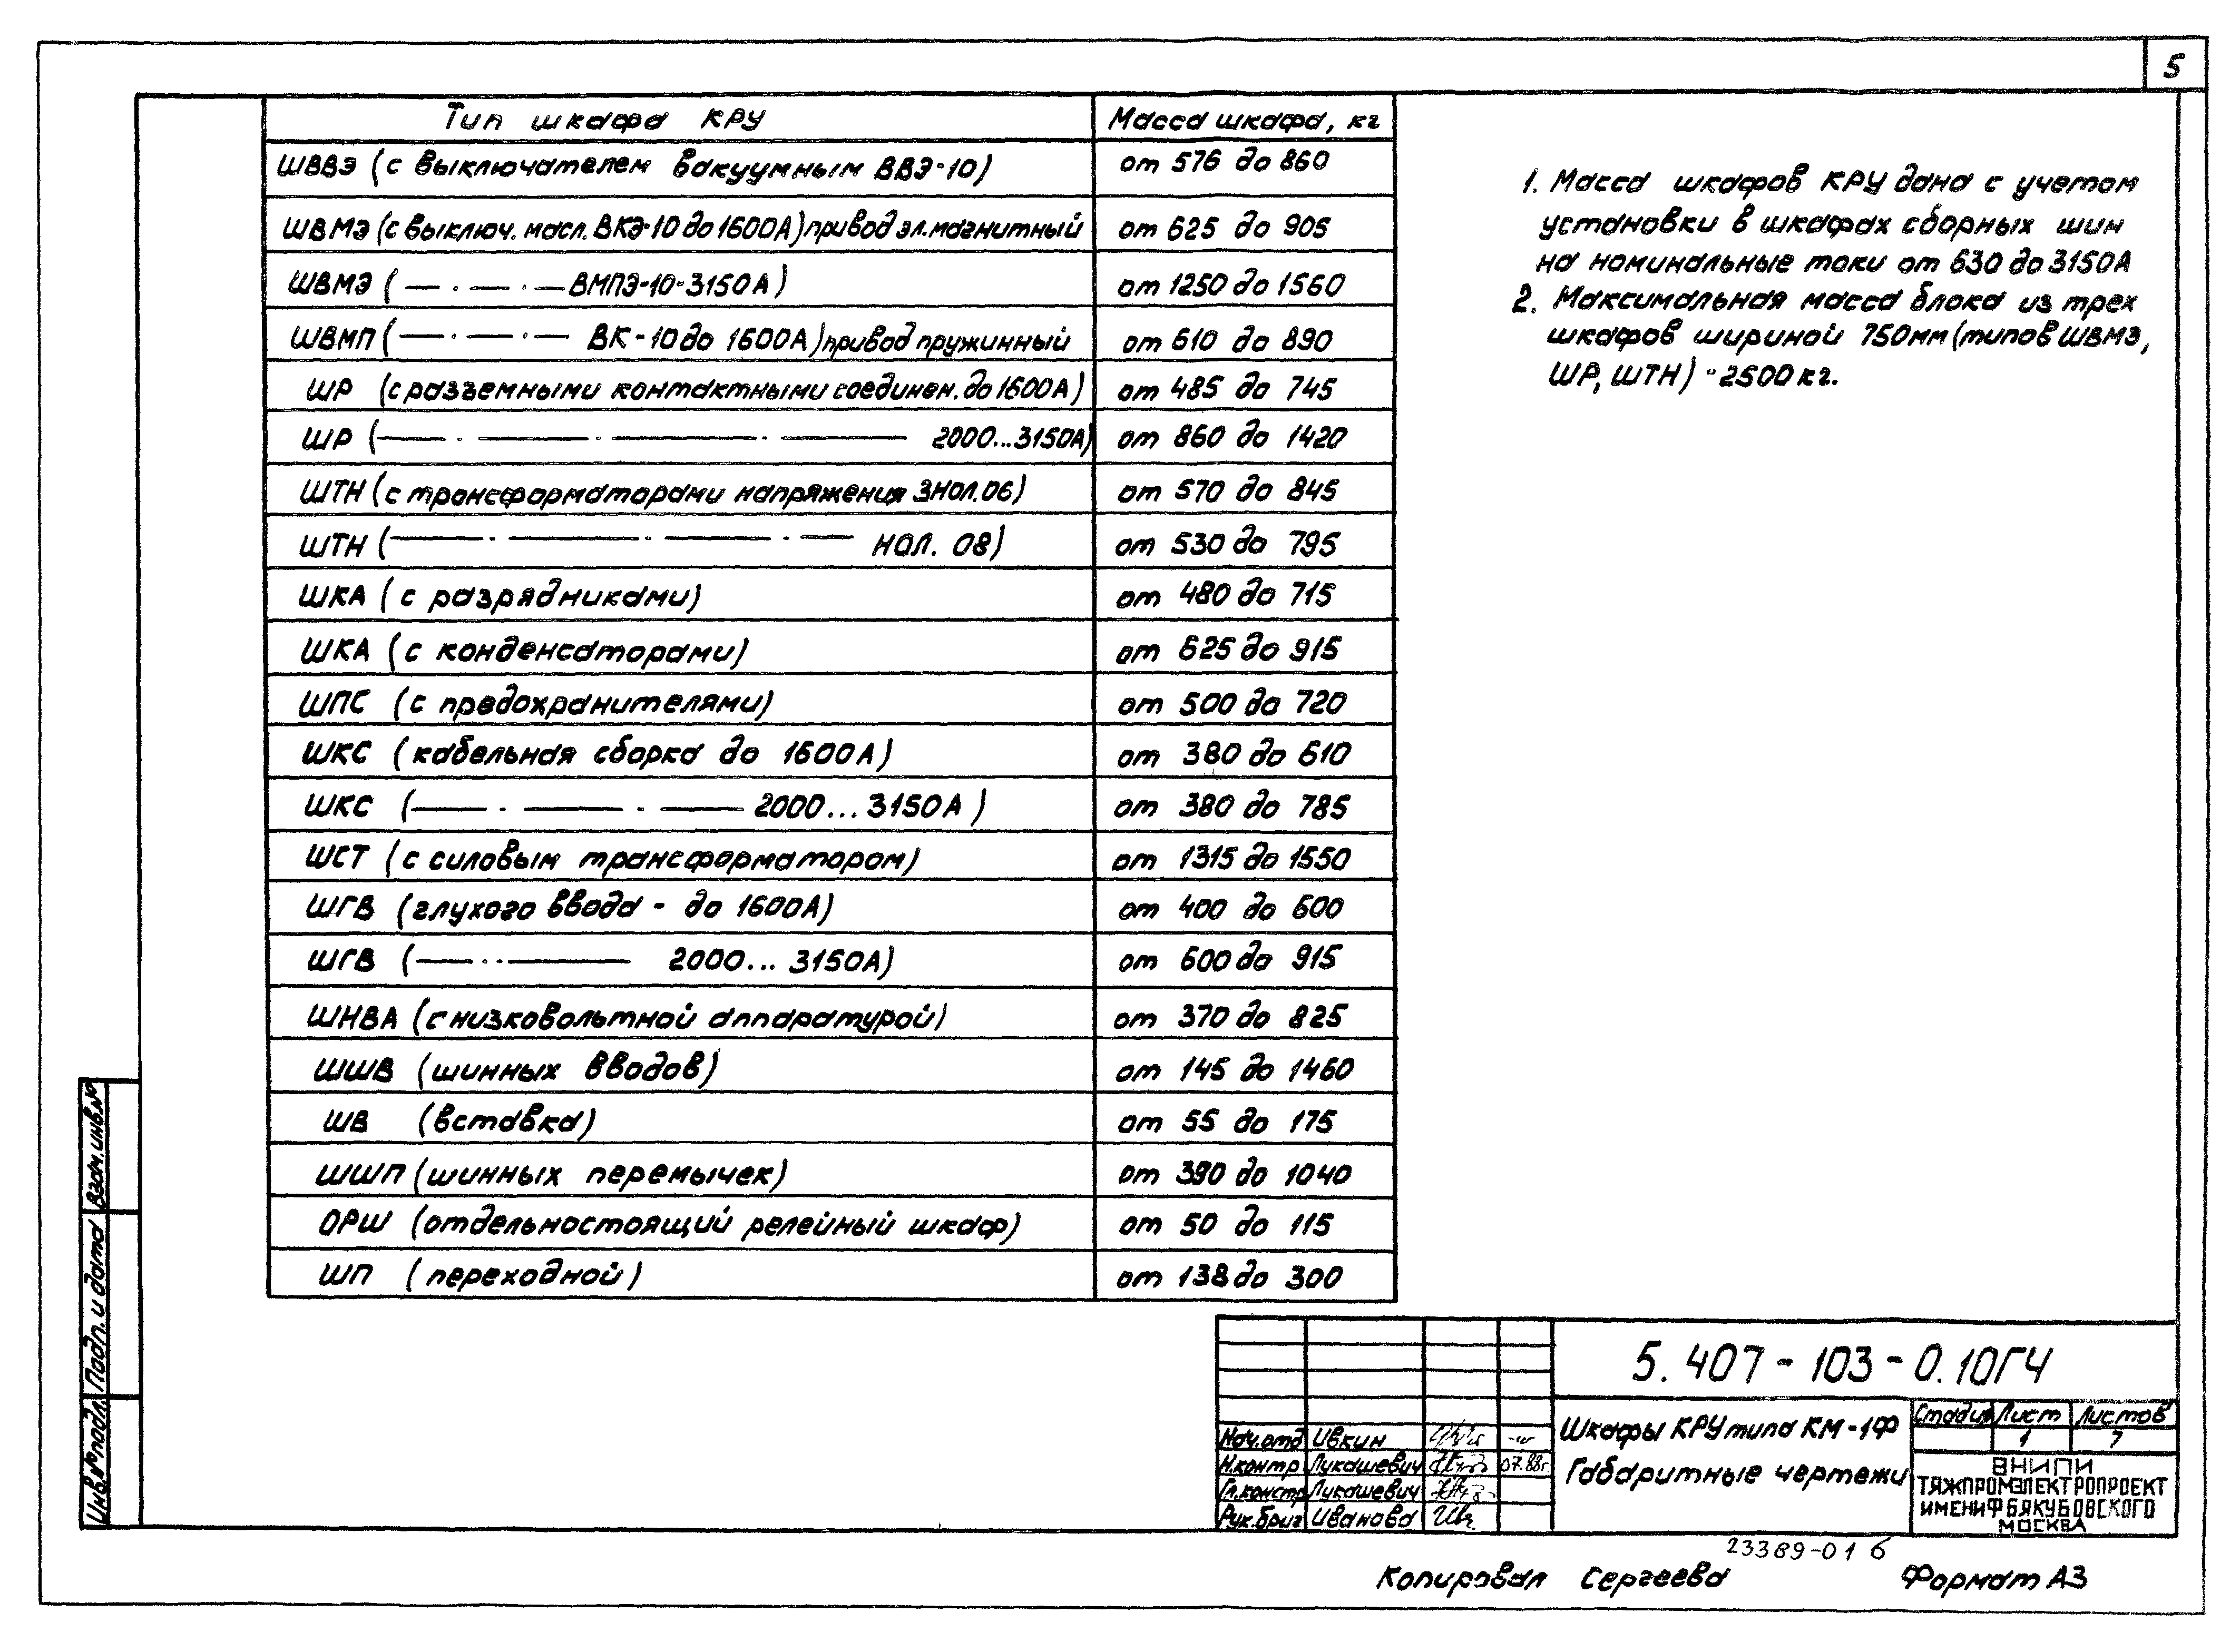 5
Тип шкафа КРУ Масса шкафа, кг
ШВВЭ (с выключателем вакуумным ВВЭ-10) от 576 до 860
ШВМЭ (с выключ. масл. ВКЭ-10 до 1600А) привод эл. магнитный от 625 до 905
ШВМЭ (— . — . — ВМПЭ-10-3150А) от 1250 до 1560
ШВМП (— . — . — ВК-10 до 1600А) привод пружинный от 610 до 890
ШР (с разъемными контактными соединен. до 1600А) от 485 до 745
ШР (— . — . — . — 2000...3150А) от 860 до 1420
ШТН (с трансформаторами напряжения ЗНОЛ.06) от 570 до 845
ШТН (— . — . — . — НОЛ. 08) от 530 до 795
ШКА (с разрядниками) от 480 до 715
ШКА (с конденсаторами) от 625 до 915
ШПС (с предохранителями) от 500 до 720
ШКС (кабельная сборка до 1600А) от 380 до 610
ШКС (— . — . — 2000...3150А) от 380 до 785
ШСТ (с силовым трансформатором) от 1315 до 1550
ШГВ (глухого ввода - до 1600А) от 400 до 600
ШГВ (— . . — 2000... 3150А) от 600 до 915
ШНВА (с низковольтной аппаратурой) от 370 до 825
ШШВ (шинных вводов) от 145 до 1460
ШВ (вставка) от 55 до 175
ШШП (шинных перемычек) от 390 до 1040
ОРШ (отдельностоящий релейный шкаф) от 50 до 115
ШП (переходной) от 138 до 300
1. Масса шкафов КРУ дана с учетом
установки в шкафах сборных шин
на номинальные токи от 630 до 3150А
2. Максимальная масса блока из трех
шкафов шириной 750мм (типов ШВМЭ,
ШР, ШТН) - 2500 кг.
Взам. инв. №
Подп. и дата
Инв. № подл.
5.407-103-0.10ГЧ
Шкафы КРУ типа КМ-1Ф
Габаритные чертежи
Стадия Лист Листов
1 7
ВНИПИ
ТЯЖПРОМЭЛЕКТРОПРОЕКТ
ИМЕНИ Ф Б ЯКУБОВСКОГО
МОСКВА
Нач. отд Ивкин
Н. контр Лукашевич 07.88г.
Гл. констр Лукашевич
Рук. бриг Иванова
23389-01 6
Копировал Сергеева Формат А3